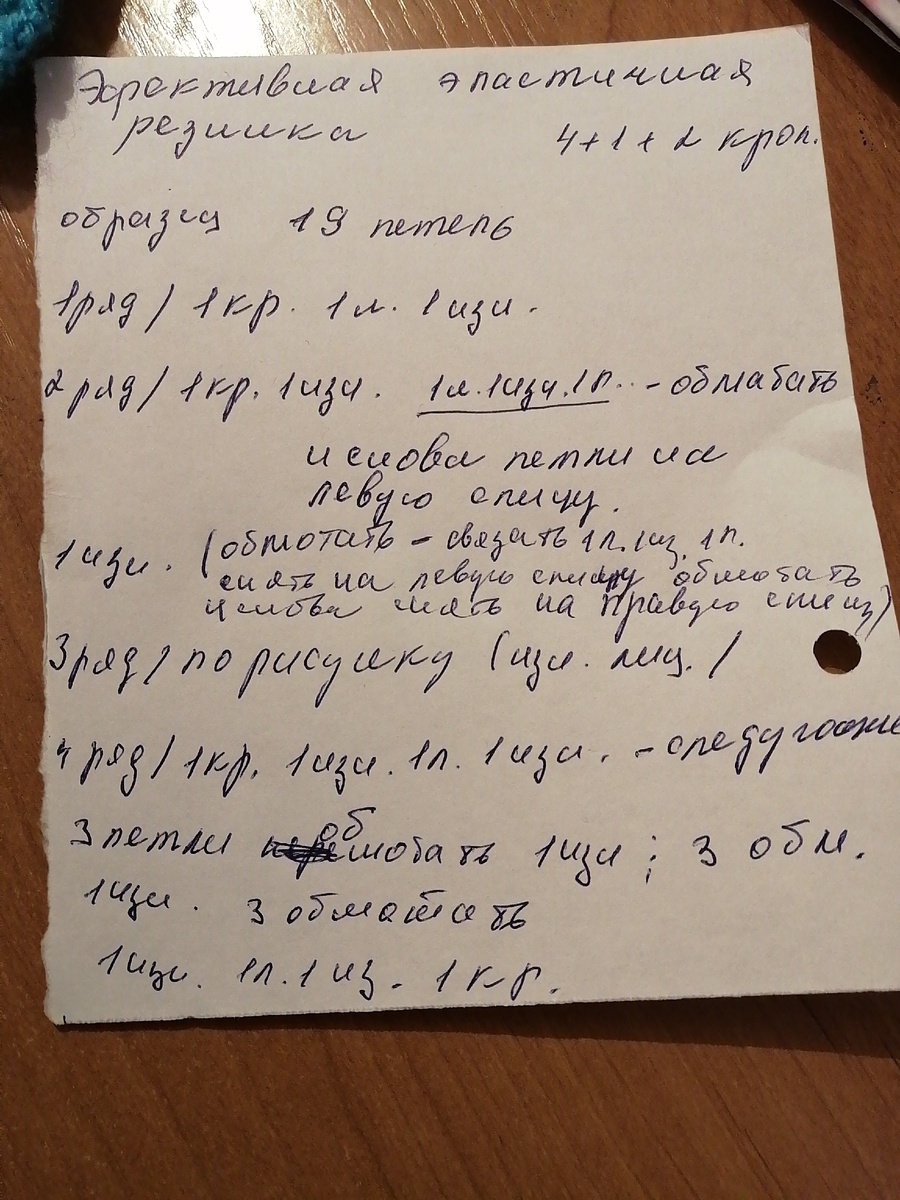 Эффективная эластичная
резинка 4+1+2 кром.
образец 19 петель
1 ряд / 1 кр. 1 л. 1 изн.
2 ряд / 1 кр. 1 изн. 1 л. 1 изн. 1 л. - обматать
и снова петли на
левую спицу.
1 изн. (обмотать - связать 1 л. 1 из. 1 л.
снять на левую спицу обмотать
и снова снять на правую спиц)
3 ряд / по рисунку (изн. лиц. /
4 ряд / 1 кр. 1 изн. 1 л. 1 изн. - следующие
3 петли обмотать 1 изн; 3 обм.
1 изн. 3 обмотать
1 изн. 1 л. 1 из. 1 кр.